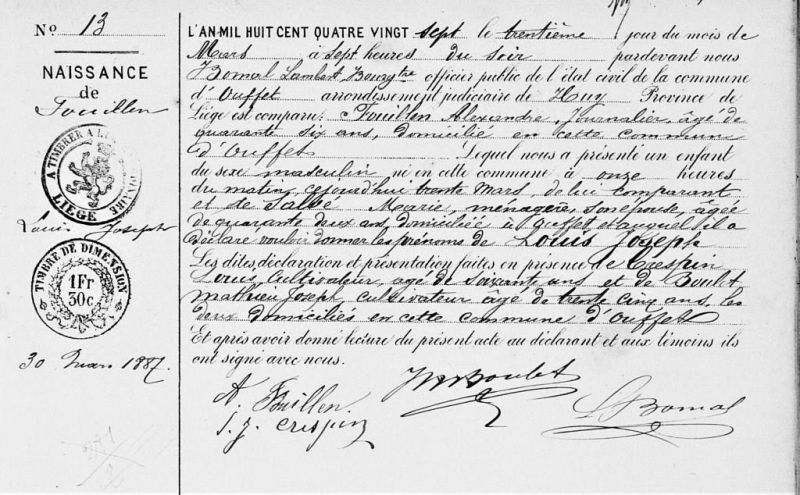 No 13
NAISSANCE
de
Fouillen
A TIMBRER A L'EX
LIEGE
Louis Joseph
TIMBRE DE DIMENSION
1Fr
30c.
30 Mars 1887.
L'AN MIL HUIT CENT QUATRE VINGT sept le trentième jour du mois de
Mars à sept heures du soir pardevant nous
Bomal Lambert officier public de l'état civil de la commune
d'Ouffet arrondissement judiciaire de Huy Province de
Liège est comparu: Fouillen Alexandre, journalier, âgé de
quarante six ans, domicilié en cette commune
d'Ouffet Lequel nous a présenté un enfant
du sexe masculin né en cette commune à onze heures
du matin, cejourd'hui trente Mars, de lui comparant
et de Marie, ménagère, son épouse, âgée
de quarante deux ans, domiciliée à Ouffet et auquel il a
déclaré vouloir donner les prénoms de Louis Joseph
Les dites déclaration et présentation faites en présence de Crespin
Louis, Cultivateur, agé de soixante ans et de Boulet
Mathieu Joseph, cultivateur âgé de trente cinq ans, les
deux domiciliés en cette commune d'Ouffet
Et après avoir donné lecture du présent acte au déclarant et aux témoins ils
ont signé avec nous.
JM Boulet
A. Fouillen.
L Bomal
J. J. Crespin